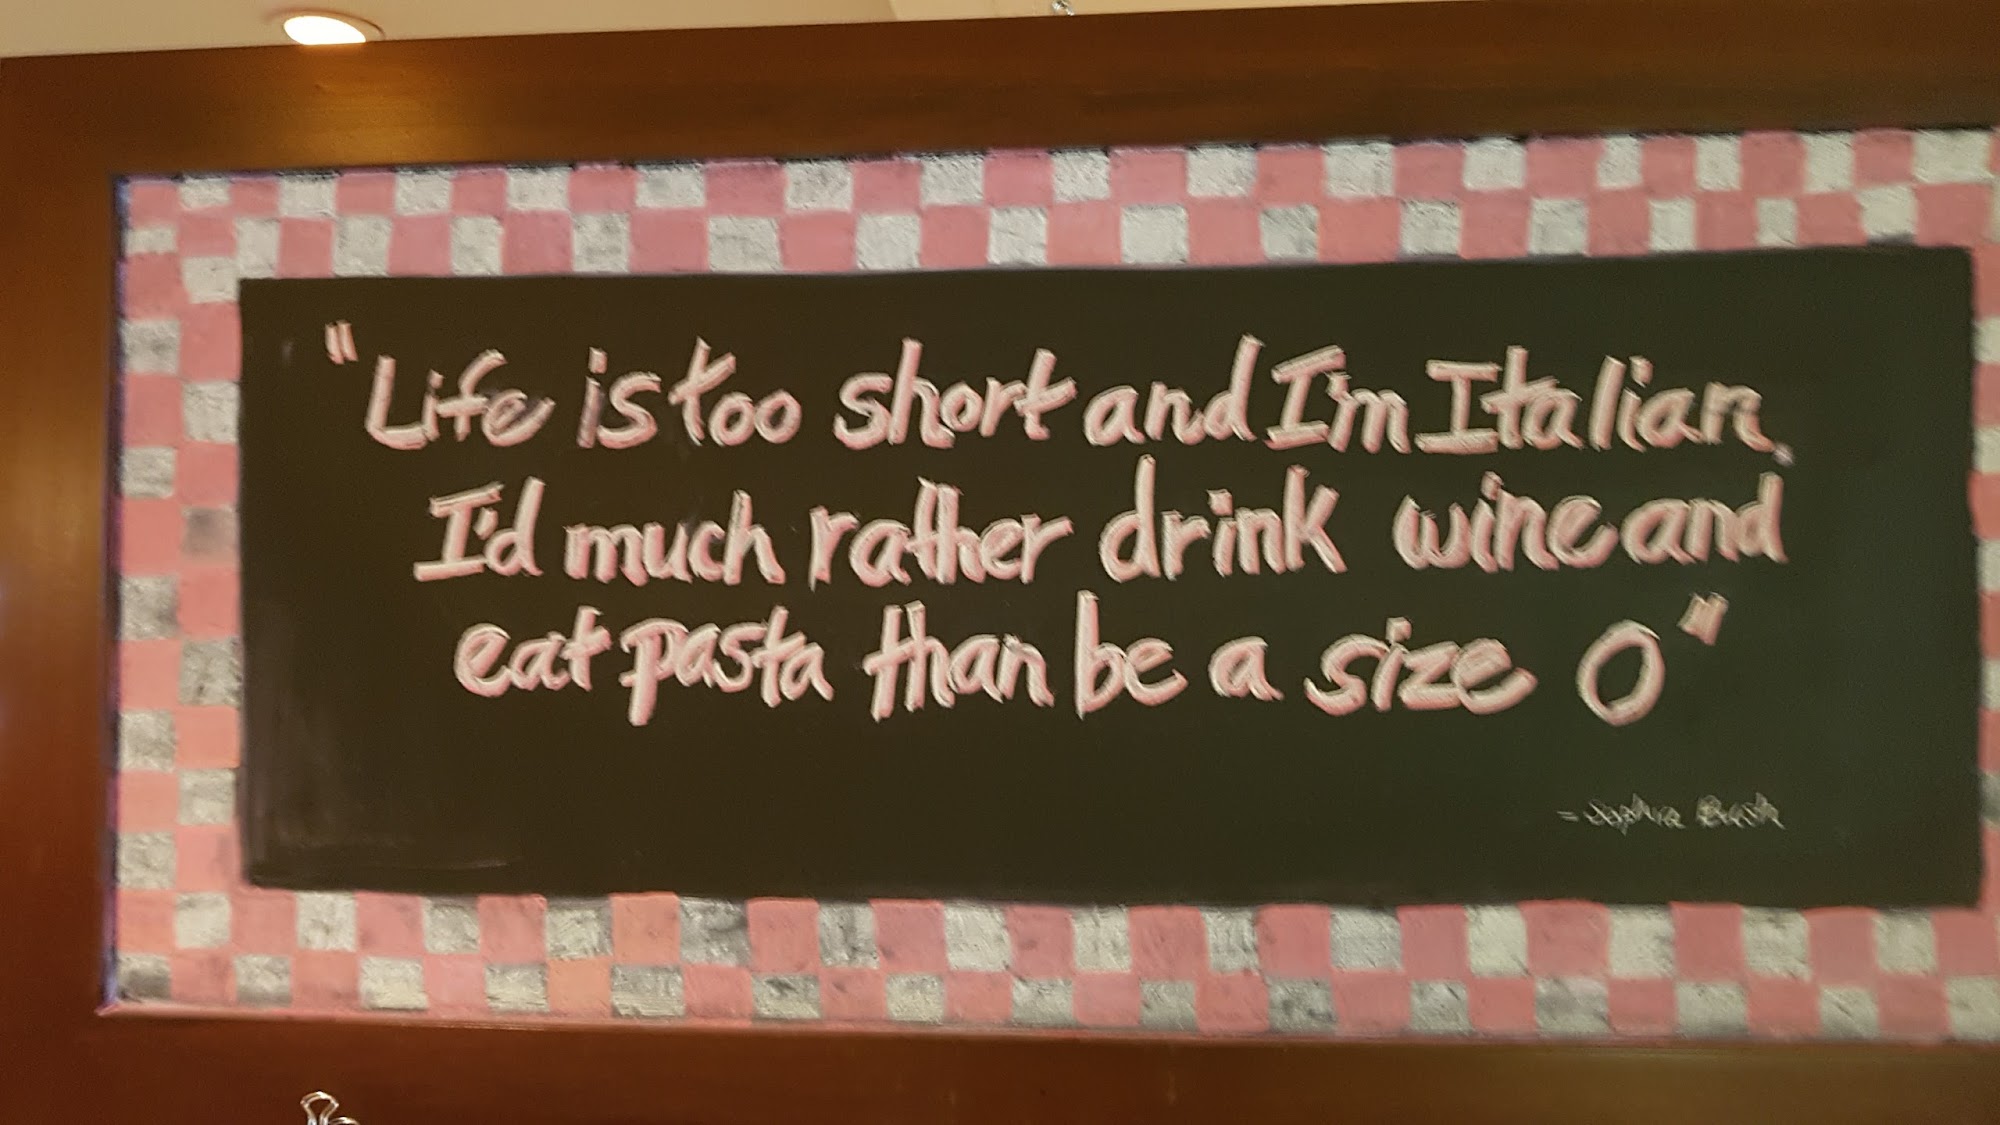 "Life is too short and I'm Italian.
I'd much rather drink wine and
eat pasta than be a size 0"
- Sophia Bush